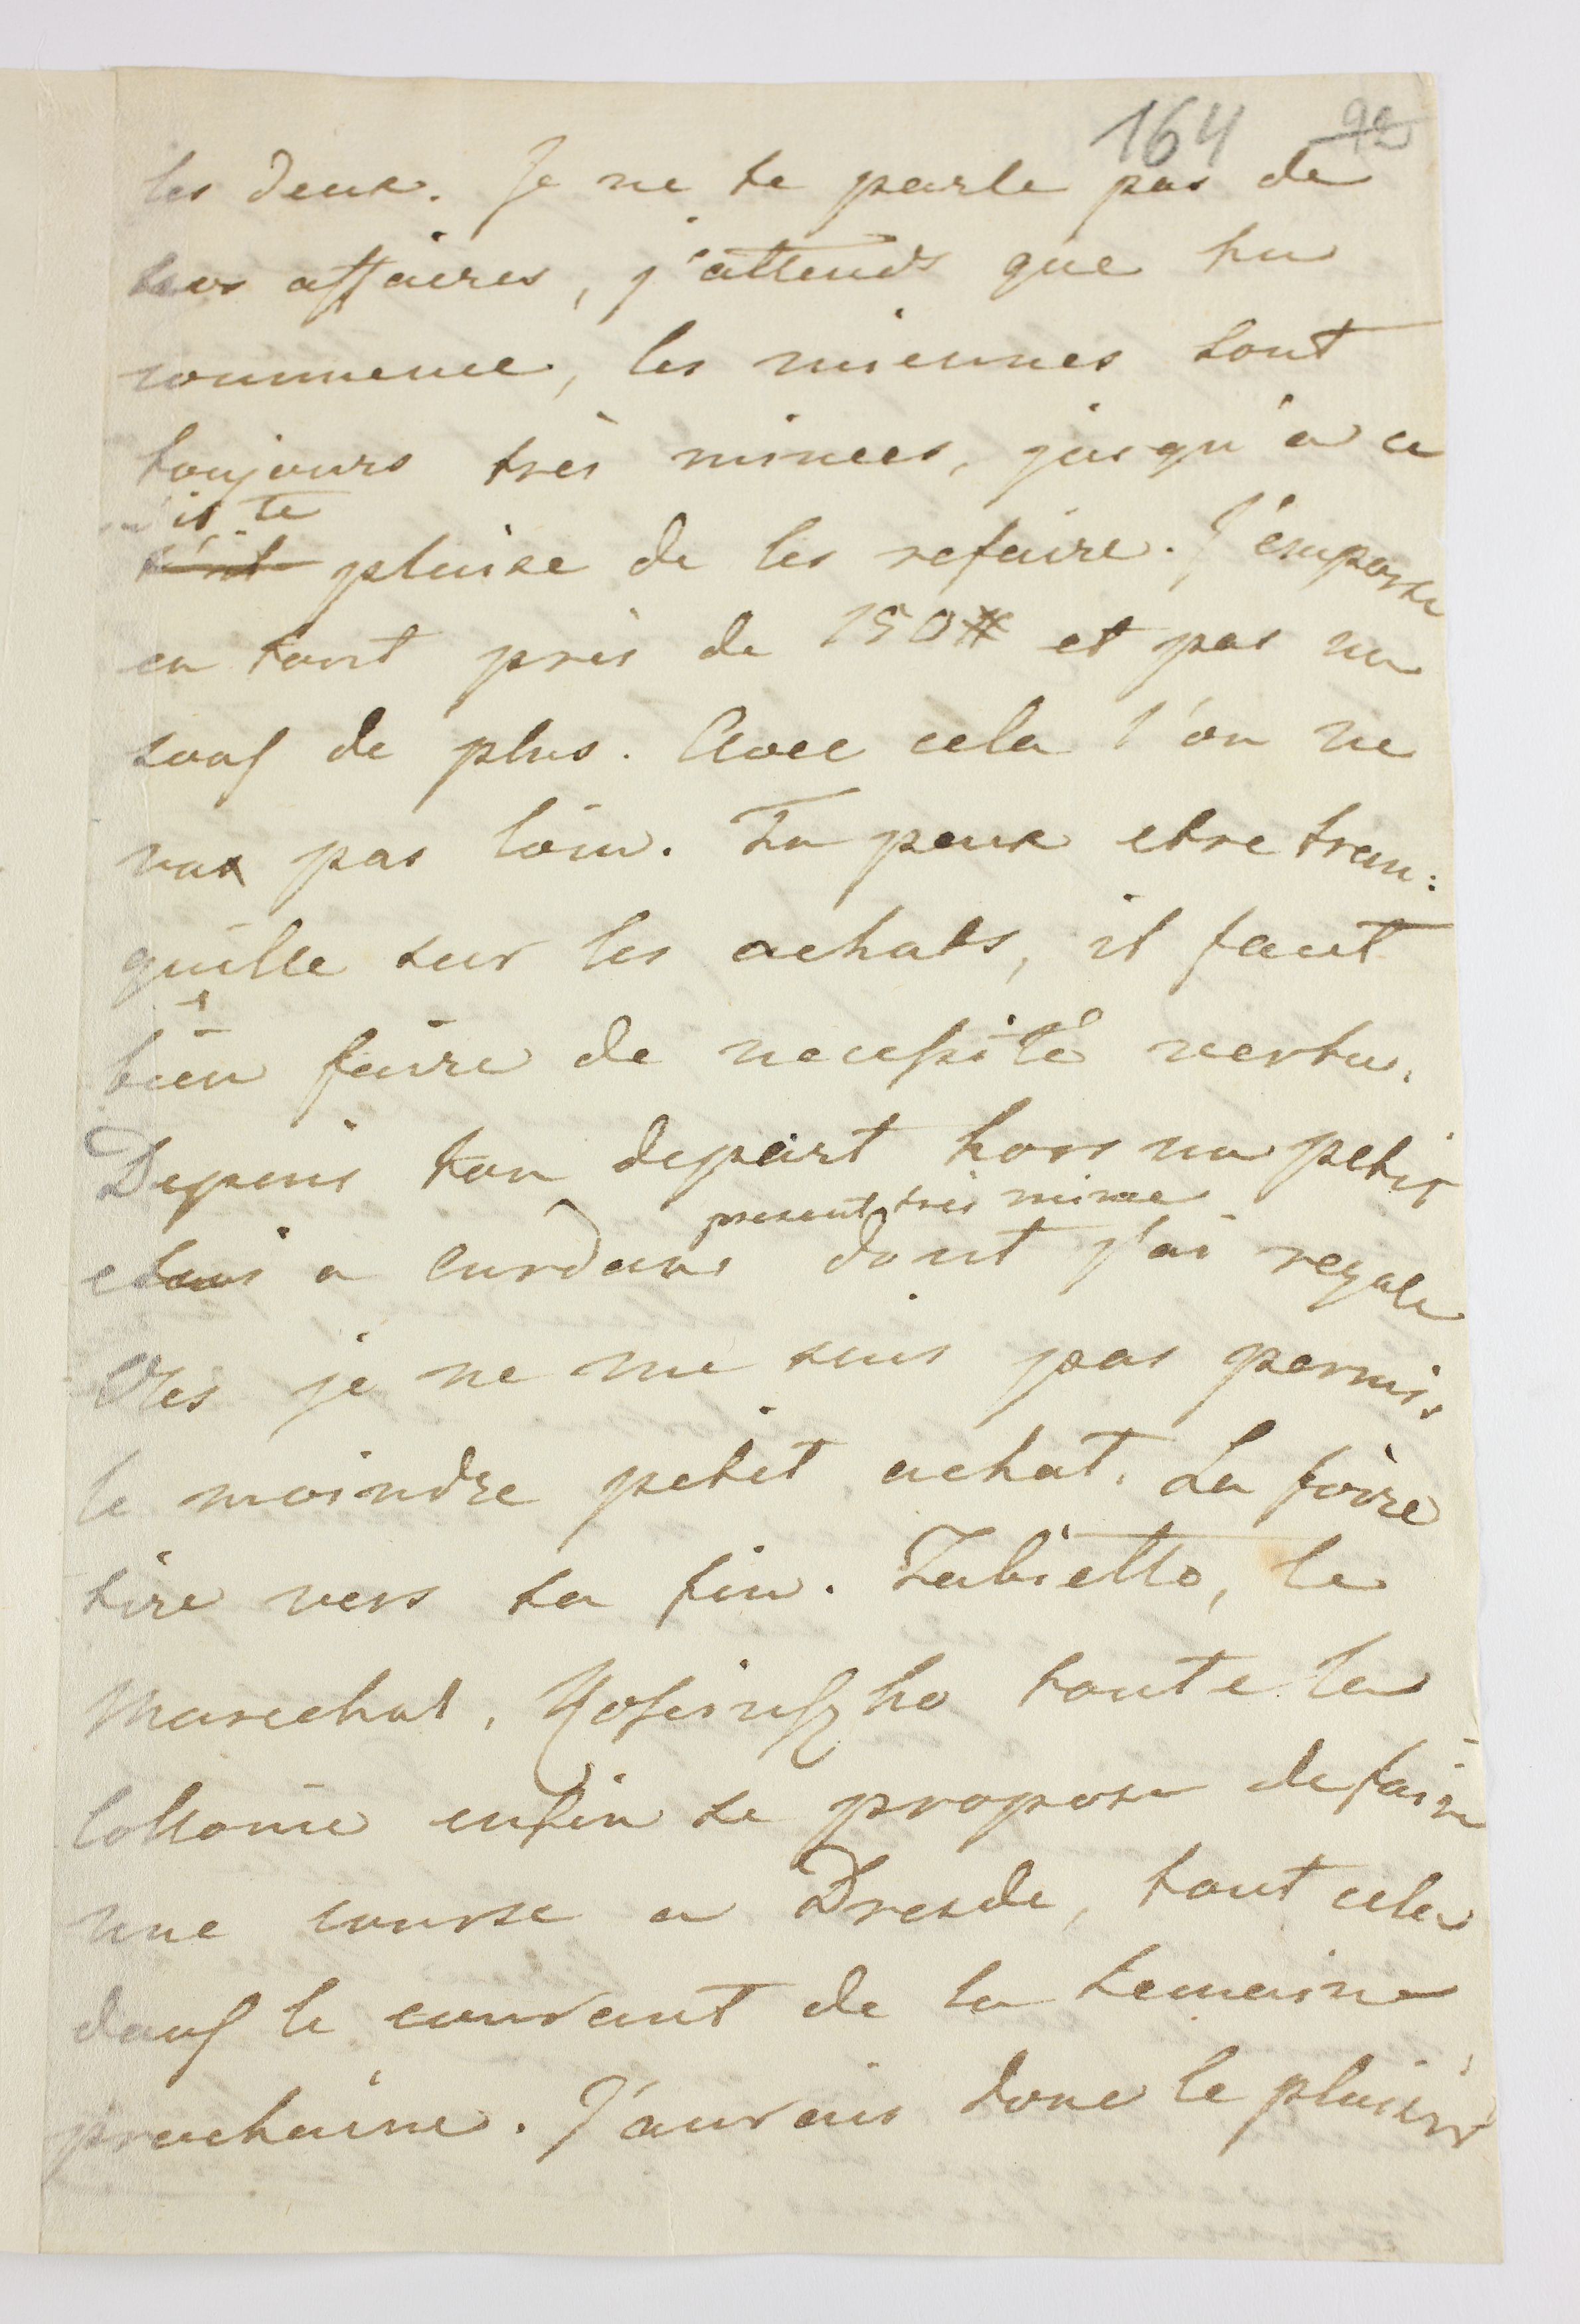 164 92
les deux. Je ne te parle pas de
tes affaires, j'attends que tu
commence, les miennes sont
toujours très minces, jusqu'à ce
qu'il te
plaise de les refaire. J'emporte
en tout près de 150# et pas un
souf de plus. Avec cela l'on ne
vax pas loin. Tu peux etre tran:
quille sur les achats, il faut
bien faire de necessité vertu.
Depuis ton depart hors un petit
present très mince
etuis a curdans dont j'ai regale
je ne me suis pas permis
le moindre petit achat. La foire
tire vers sa fin. Zabiello, le
Marechal, toute la
Collonie enfin se propose de faire
une course a Dresde, tout cela
dans le courant de la semaine
prochaine. J'aurais donc le plaisir